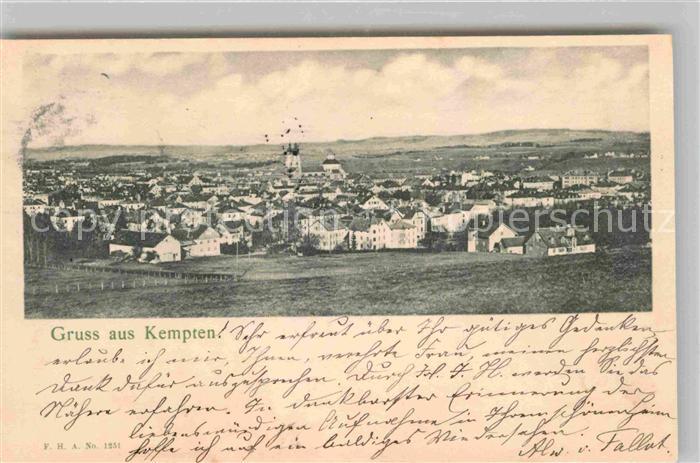 Gruss aus Kempten! Sehr erfreut über Ihr gütiges Gedenken
erlaube ich mir, Ihnen, verehrte Frau, meinen herzlichsten
Dank dafür auszusprechen. Durch werden Sie das
Nähere erfahren. In dankbarster Erinnerung der
liebenswürdigen Aufnahme in Ihrem schönen Heim
hoffe ich auf ein baldiges Wiedersehen.
Alw. v. Fallot.
F. H. A. No. 1251
copyright protected copyright protected copyright